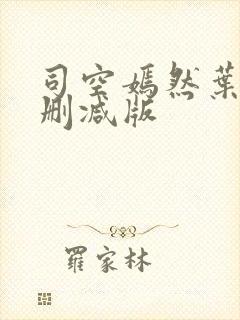 司空嫣然葉
删减版
羅家林